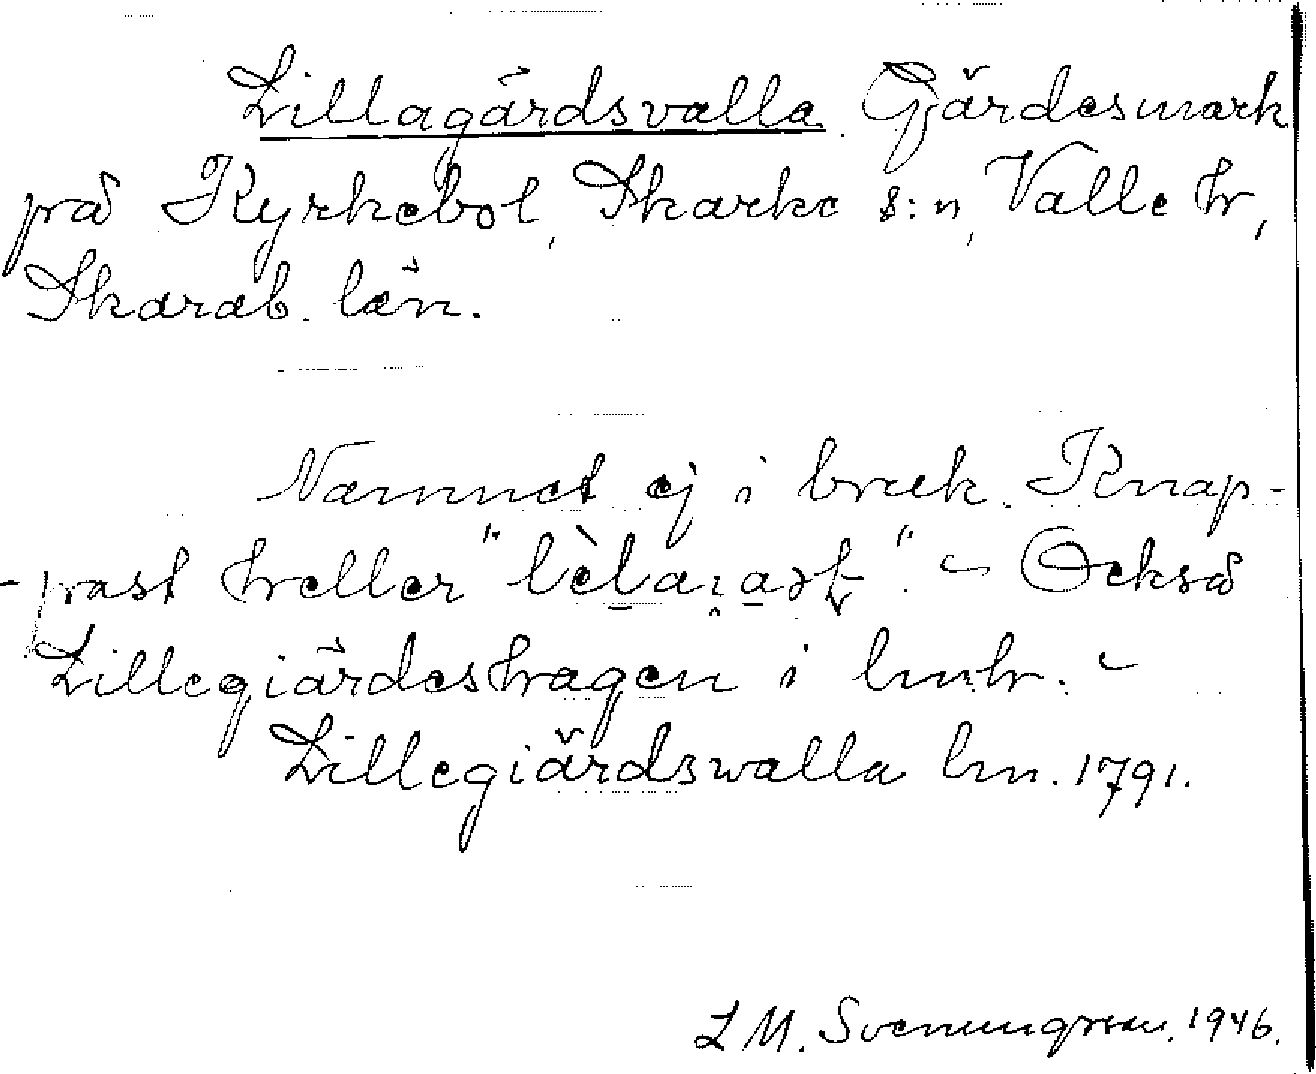 Lillagärdsvalla. Gärdesmark
på Kyrkebol, Skarke s:n, Valle hr,
Skarab. län.
Namnet ej i bruk. Knap-
-past heller " ". – Också
Lillegiärdeshagen i lmh. –
Lillegiärdswalla lm. 1791.
L M. Svenungsson. 1946.